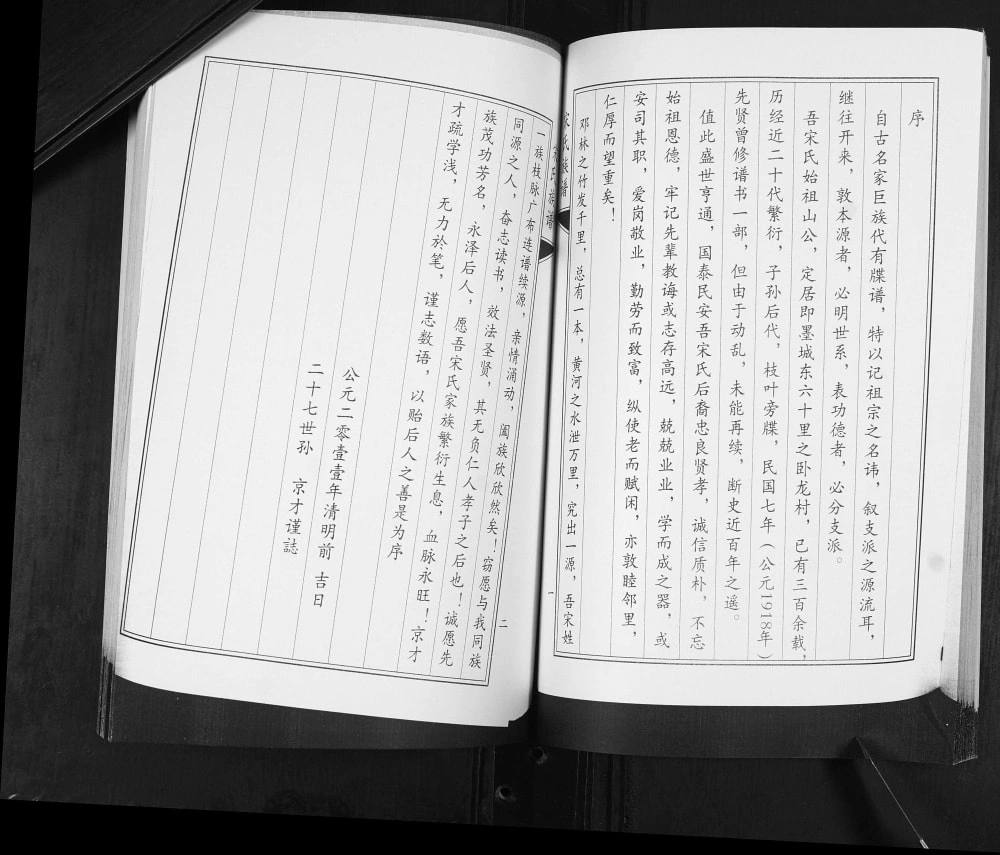 序
自古名家巨族代有牒谱，特以记祖宗之名讳，叙支派之源流耳，
继往开来，敦本源者，必明世系，表功德者，必分支派。
吾宋氏始祖山公，定居即墨城东六十里之卧龙村，已有三百余载，
历经近二十代繁衍，子孙后代，枝叶旁牒，民国七年（公元1918年）
先贤曾修谱书一部，但由于动乱，未能再续，断史近百年之遥。
值此盛世亨通，国泰民安吾宋氏后裔忠良贤孝，诚信质朴，不忘
始祖恩德，牢记先辈教诲或志存高远，兢兢业业，学而成之器，或
安司其职，爱岗敬业，勤劳而致富，纵使老而赋闲，亦敦睦邻里，
仁厚而望重矣！
邓林之竹发千里，总有一本，黄河之水泄万里，究出一源，吾宋姓
宋氏族谱
一
宋氏族谱
二
一族枝脉广布连谱续源，亲情涌动，阖族欣欣然矣！窃愿与我同族
同源之人，奋志读书，效法圣贤，其无负仁人孝子之后也！诚愿先
族茂功芳名，永泽后人，愿吾宋氏家族繁衍生息，血脉永旺！京才
才疏学浅，无力於笔，谨志数语，以贻后人之善是为序
公元二零壹壹年清明前 吉日
二十七世孙 京才谨誌